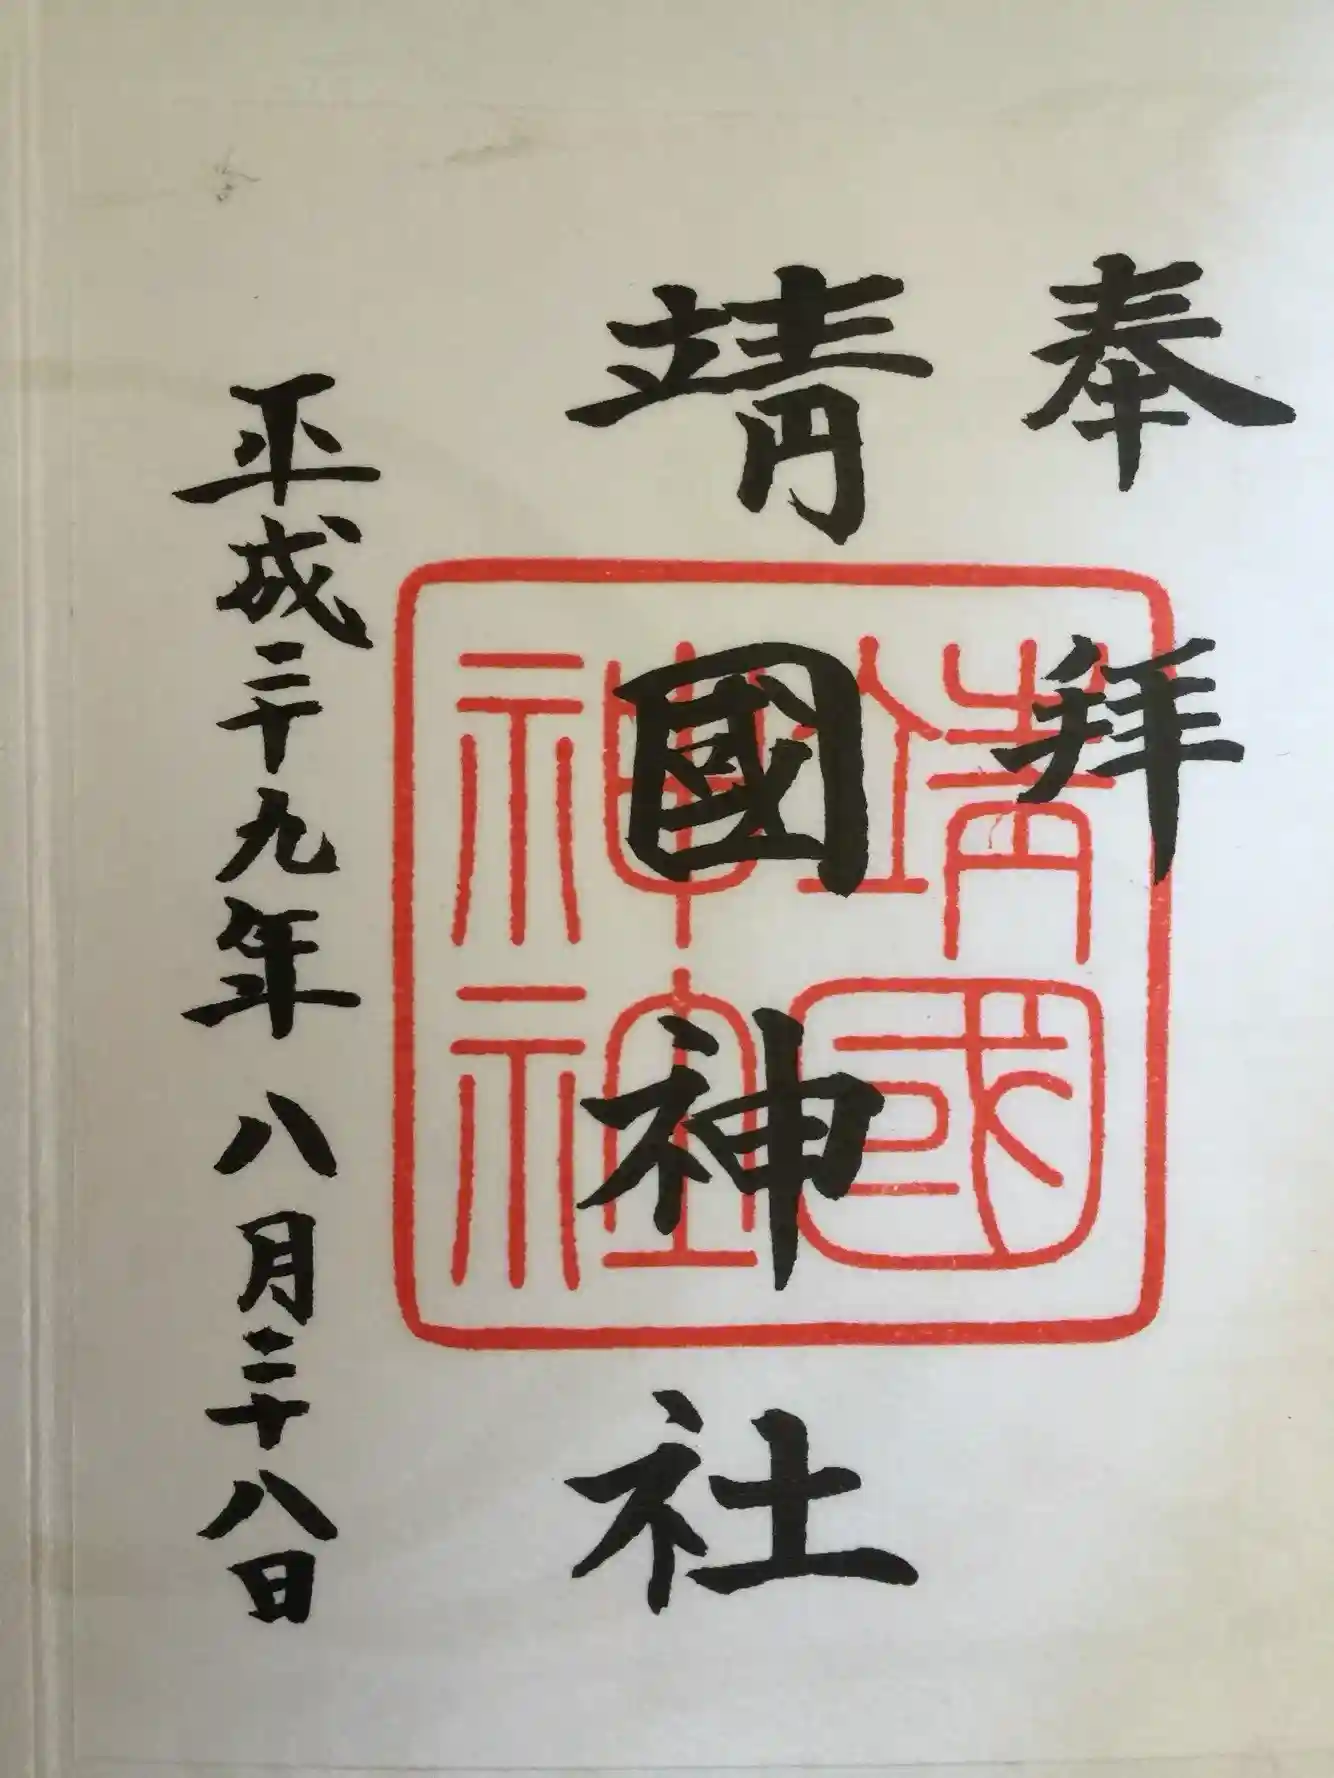 奉拜
靖國神社
靖國
神社
平成二十九年八月二十八日